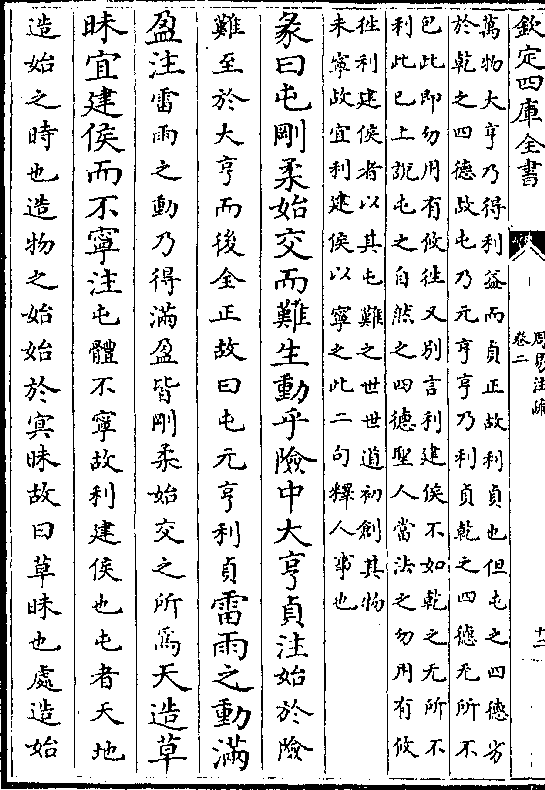 欽定四庫全書
周易注疏
卷二
十二
萬物大亨乃得利益而貞正故利貞也但屯之四德劣
於乾之四德故屯乃元亨亨乃利貞乾之四德无所不
包此即勿用有攸往又別言利建侯不如乾之无所不
利此已上說屯之自然之四德聖人當法之勿用有攸
往利建侯者以其屯難之世世道初創其物
未寧故宜利建侯以寧之此二句釋人事也
彖曰屯剛柔始交而難生動乎險中大亨貞注始於險
難至於大亨而後全正故曰屯元亨利貞雷雨之動滿
盈注雷雨之動乃得滿盈皆剛柔始交之所為天造草
昧宜建侯而不寧注屯體不寧故利建侯也屯者天地
造始之時也造物之始始於冥昧故曰草昧也處造始